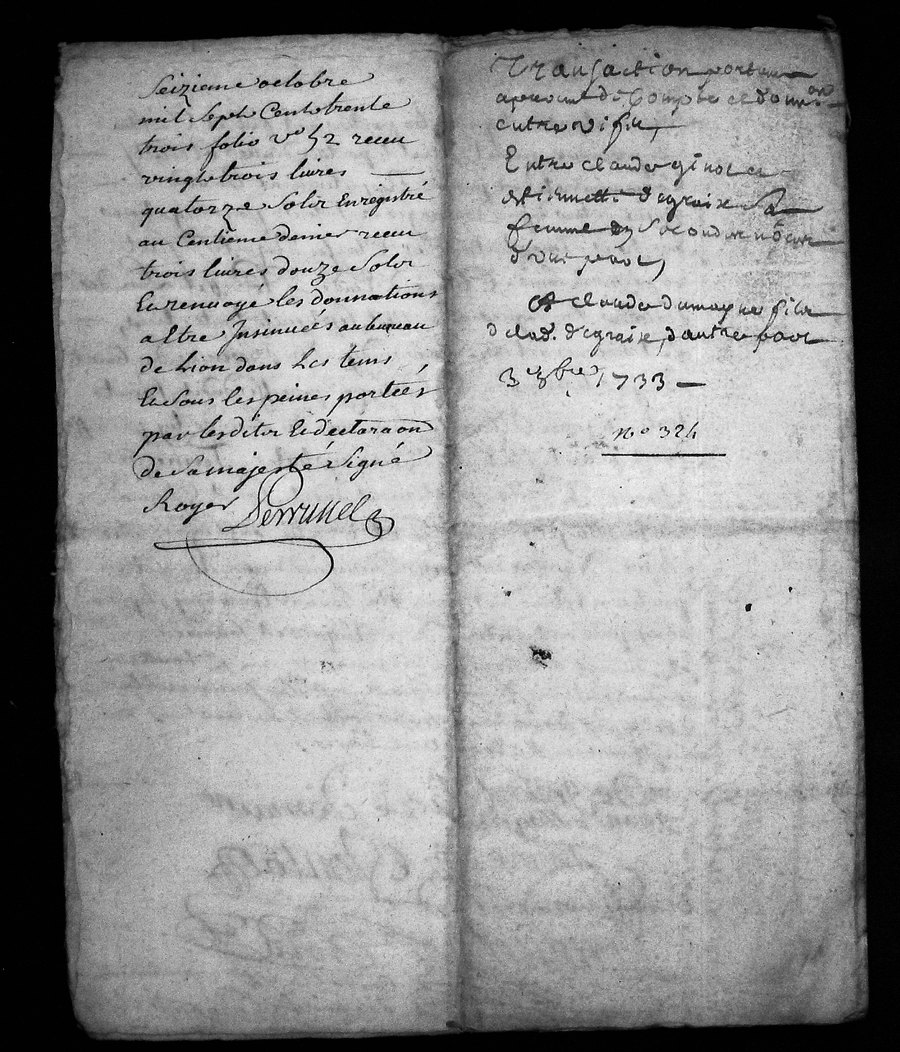 Seizieme octobre
mil Sept Cent trente
trois folio v° 52 receu
vingt trois livres
quatorze Solz Enregistré
au Centieme denier receu
trois livres douze Solz
Et renvoyé les donnations
a Etre Insinuées au bureau
de Lion dans les tems
Et Sous les peines portées
par les dits Et declaraon
de Sa majesté Signé
Royer Perrussel
Transaction portant
apurement de Compte et donnon
entre vifs
Entre claude ginot et
estiennette degraix Sa
femme en Secondes nôces
d'une part,
Et claude dumayne fils
de lad. degraix, d'autre part
3e 8bre 1733
n° 324